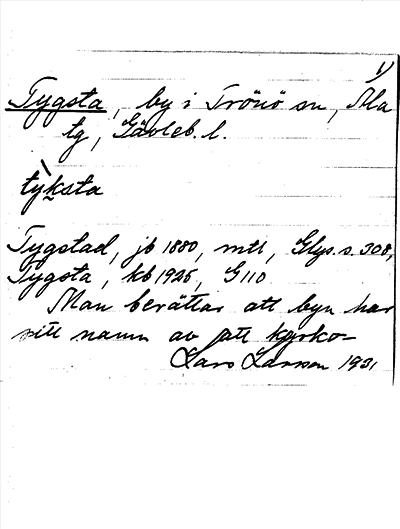 1)
Tygsta, by i Trönö sn, Ala
tg, Gävleb. l.
tỳksta
Tygstad, jb 1880, mtl, Glgs. s. 308,
Tygsta, kb 1926, G110
Man berättar att byn har
sitt namn av att kyrko-
Lars Larsson 1931